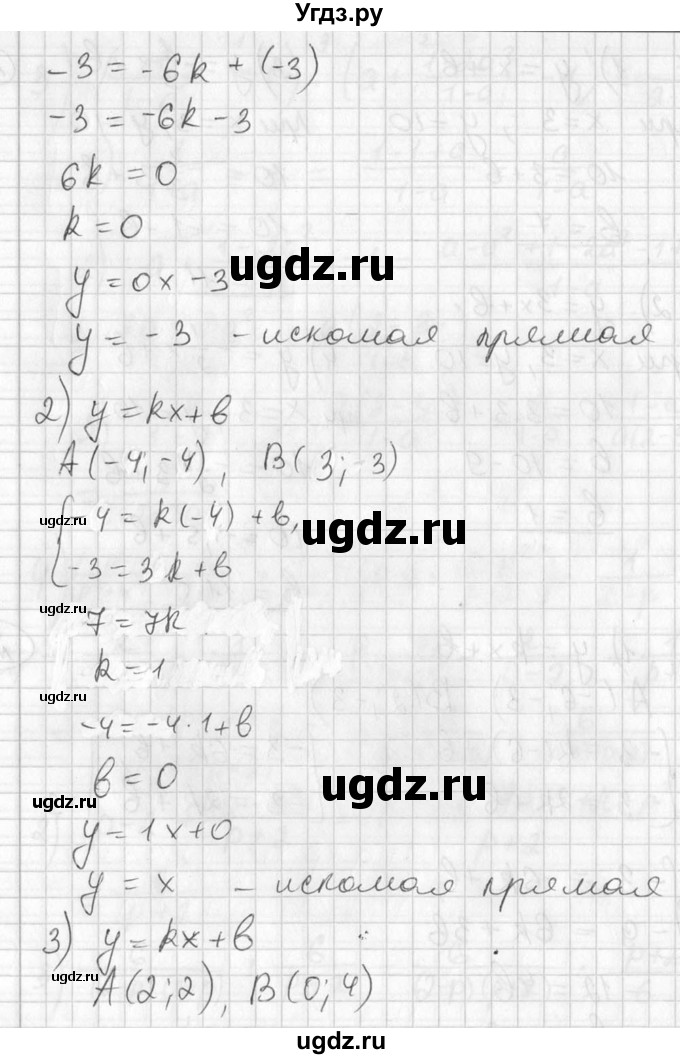 Угдз.ру
-3 = -6k + (-3)
-3 = -6k - 3
6k = 0
k = 0
y = 0x - 3
ugdz.ru
y = -3 - искомая прямая
2) y = kx + b
A(-4; -4), B(3; -3)
ugdz.ru
-4 = k(-4) + b,
ugdz.ru
-3 = 3k + b
ugdz.ru
7 = 7k
k = 1
ugdz.ru
-4 = -4·1 + b
b = 0
ugdz.ru
ugdz.ru
y = 1x + 0
y = x - искомая прямая
3) y = kx + b
ugdz.ru
A(2; 2), B(0; 4)
ugdz.ru